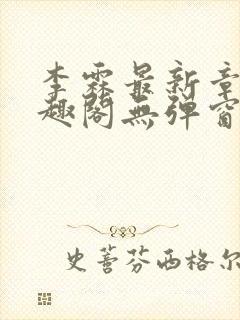 李霖最新章
趣阁無弹窗
史蒈芬西格尔